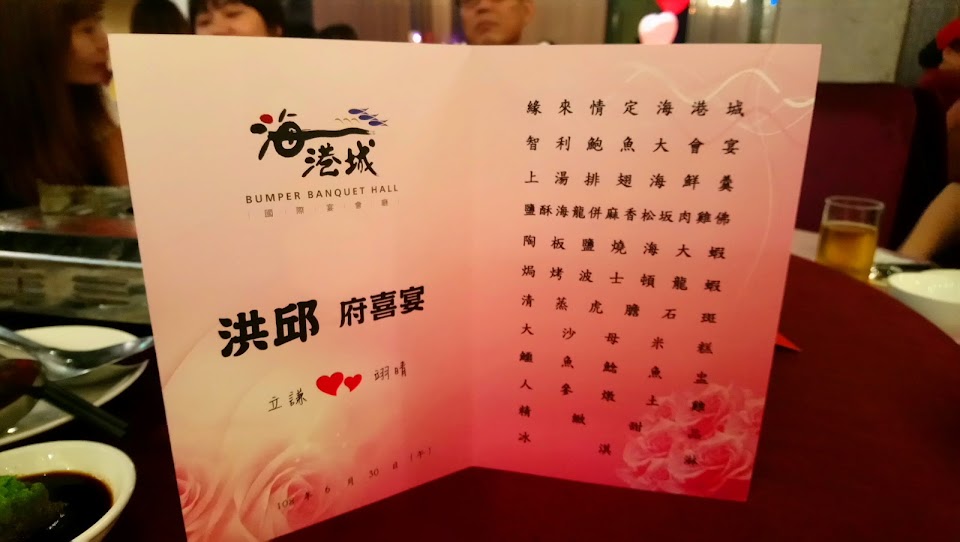 海港城
BUMPER BANQUET HALL
國際宴會廳
洪邱 府喜宴
立謙 翊晴
108年6月30日(午)
緣來情定海港城
智利鮑魚大會宴
上湯排翅海鮮羹
鹽酥海龍併麻香松坂肉雞佛
陶板鹽燒海大蝦
焗烤波士頓龍蝦
清蒸虎膽石斑
大沙母米糕
鱷魚鯰魚盅
人參燉土雞
精緻甜品
冰淇淋